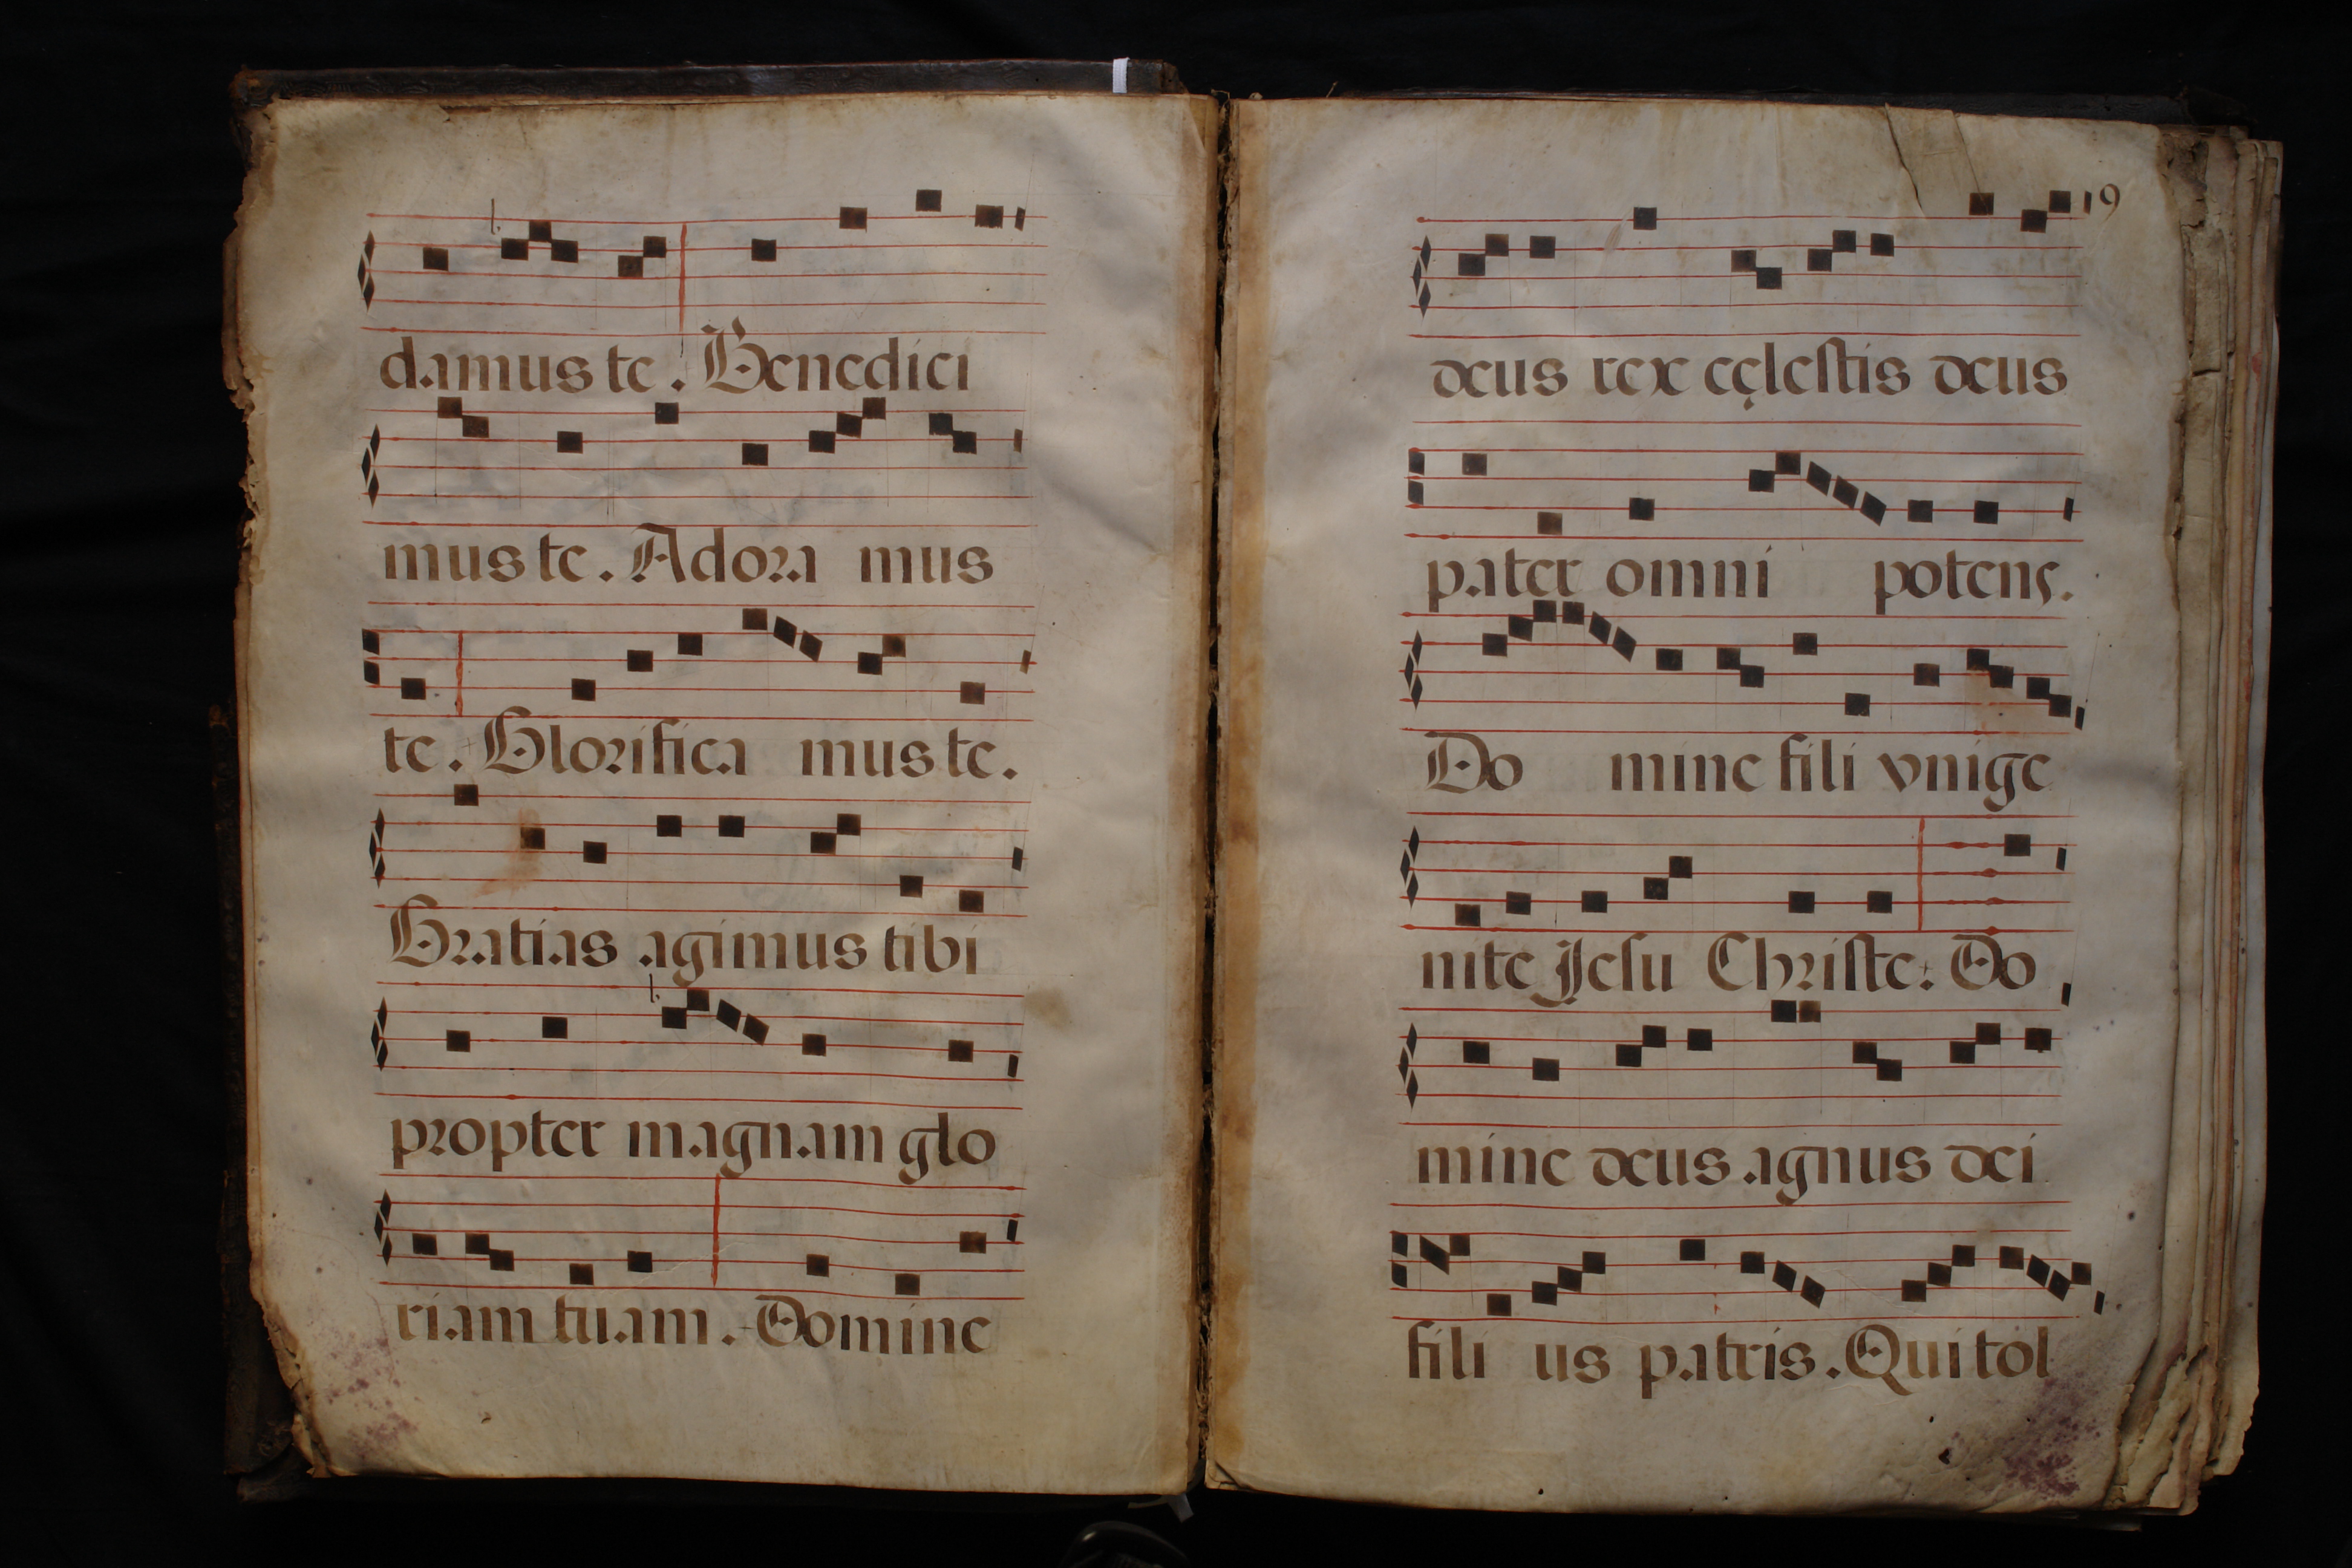 damus te. Benedici
mus te. Adora mus
te. Glorifica mus te.
Gratias agimus tibi
propter magnam glo
riam tuam. Domine
19
deus rex cęlestis deus
pater omni potens.
Do mine fili vnige
nite Jesu Christe. Do
mine deus agnus dei
fili us patris. Qui tol